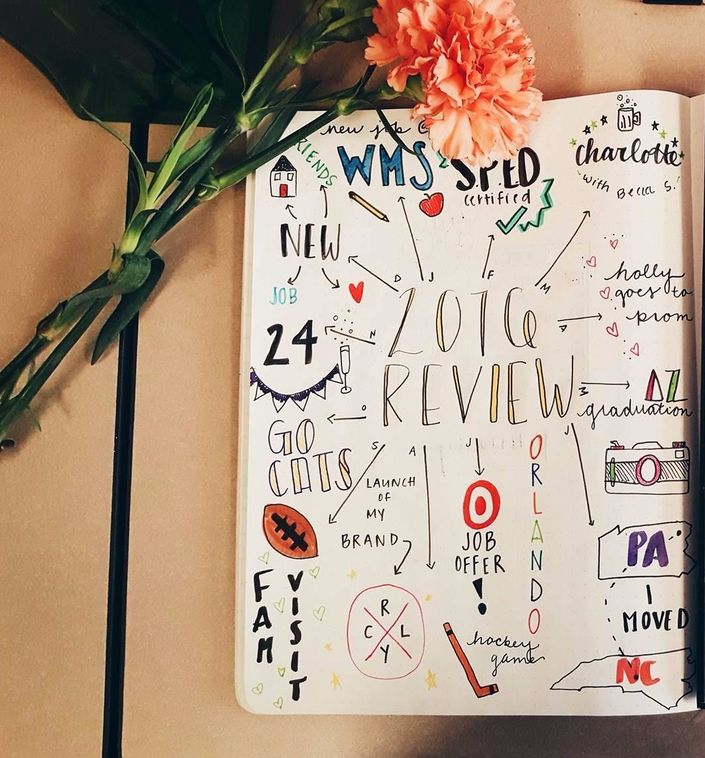 new job @
WMS
FRIENDS
S.P.ED
certified
charlotte
with Becca S.!
NEW
JOB
D
J
F
M
24
N
2016
REVIEW
holly
goes to
prom
ΔZ
graduation
O
GO
CATS
S
A
J
J
M
LAUNCH
OF
MY
BRAND
JOB
OFFER
!
ORLANDO
PA
I
MOVED
NC
FAM
VISIT
R
C L
Y
hockey
game